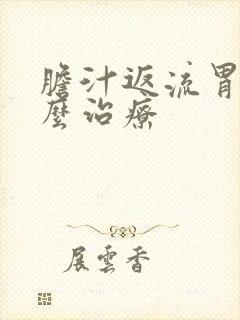 膽汁返流胃
麼治療
展雲香